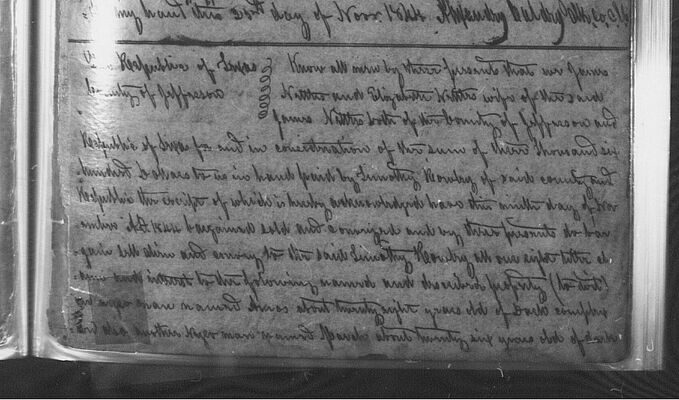 my hand this 20th day of Novr 1844.
Republic of Texas Know all men by these presents that we James
County of Jefferson Nettles and Elizabeth Nettles wife of the said
James Nettles both of the County of Jefferson and
Republic of Texas for and in consideration of the sum of three thousand six
hundred Dollars to us in hand paid by Timothy Rowley of said county and
Republic the receipt of which is hereby acknowledged have this ninth day of Nov
AD 1844 bargained sold and conveyed and by these presents do bar
gain sell alien and convey to the said Timothy Rowley all our right title
and interest to the following named and described property (to wit)
negro man named about twenty eight years old of Dark complex
also another Negro man named about twenty six years old of dark